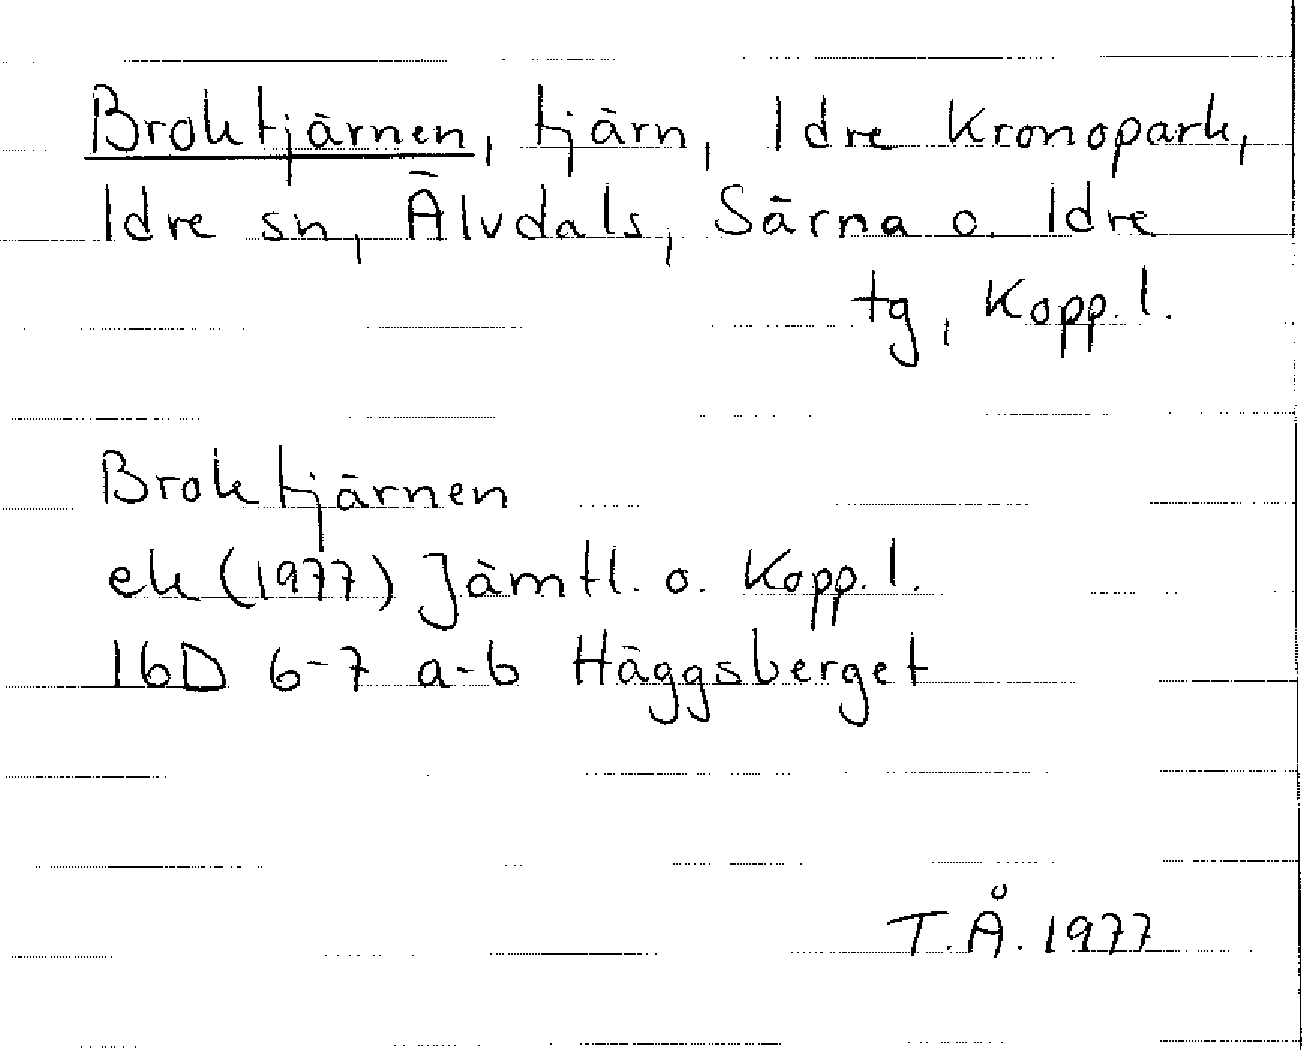 Broktjärnen, tjärn, Idre Kronopark,
Idre sn, Älvdals, Särna o. Idre
tg, Kopp. l.
Broktjärnen
ek (1977) Jämtl. o. Kopp. l.
16D 6-7 a-b Häggsberget
T.Å. 1977